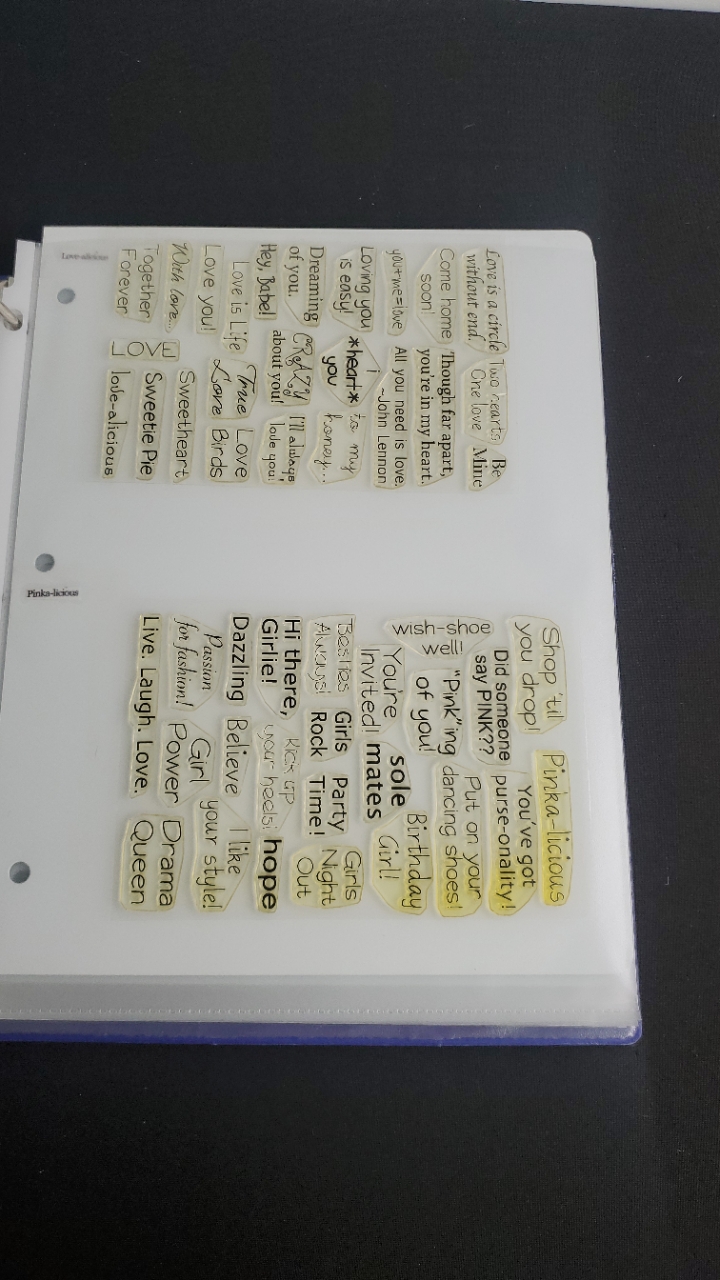 Love is a circle
without end.
Two hearts
One love
Be
Mine
Come home
soon!
Though far apart,
you're in my heart.
you+me=love
All you need is love.
-John Lennon
Loving you
is easy!
i
*heart*
you
to my
honey...
Dreaming
of you.
CRAZY
about you!
I'll always
love you!
Hey, Babe!
Love is Life
True Love
Love you!
Love Birds
With love...
Sweetheart
Together
Forever
LOVE
Sweetie Pie
love-alicious
Love-alicious
Shop 'til
you drop!
Pinka-licious
Did someone
say PINK??
You've got
purse-onality!
wish-shoe
well!
"Pink"ing
of you!
Put on your
dancing shoes!
You're
Invited!
sole
mates
Birthday
Girl!
Besties
Always!
Girls
Rock
Party
Time!
Girls
Night
Out
Hi there,
Girlie!
Kick up
your heels!
hope
Dazzling
Believe
I like
your style!
Passion
for fashion!
Girl
Power
Drama
Queen
Live. Laugh. Love.
Pinka-licious